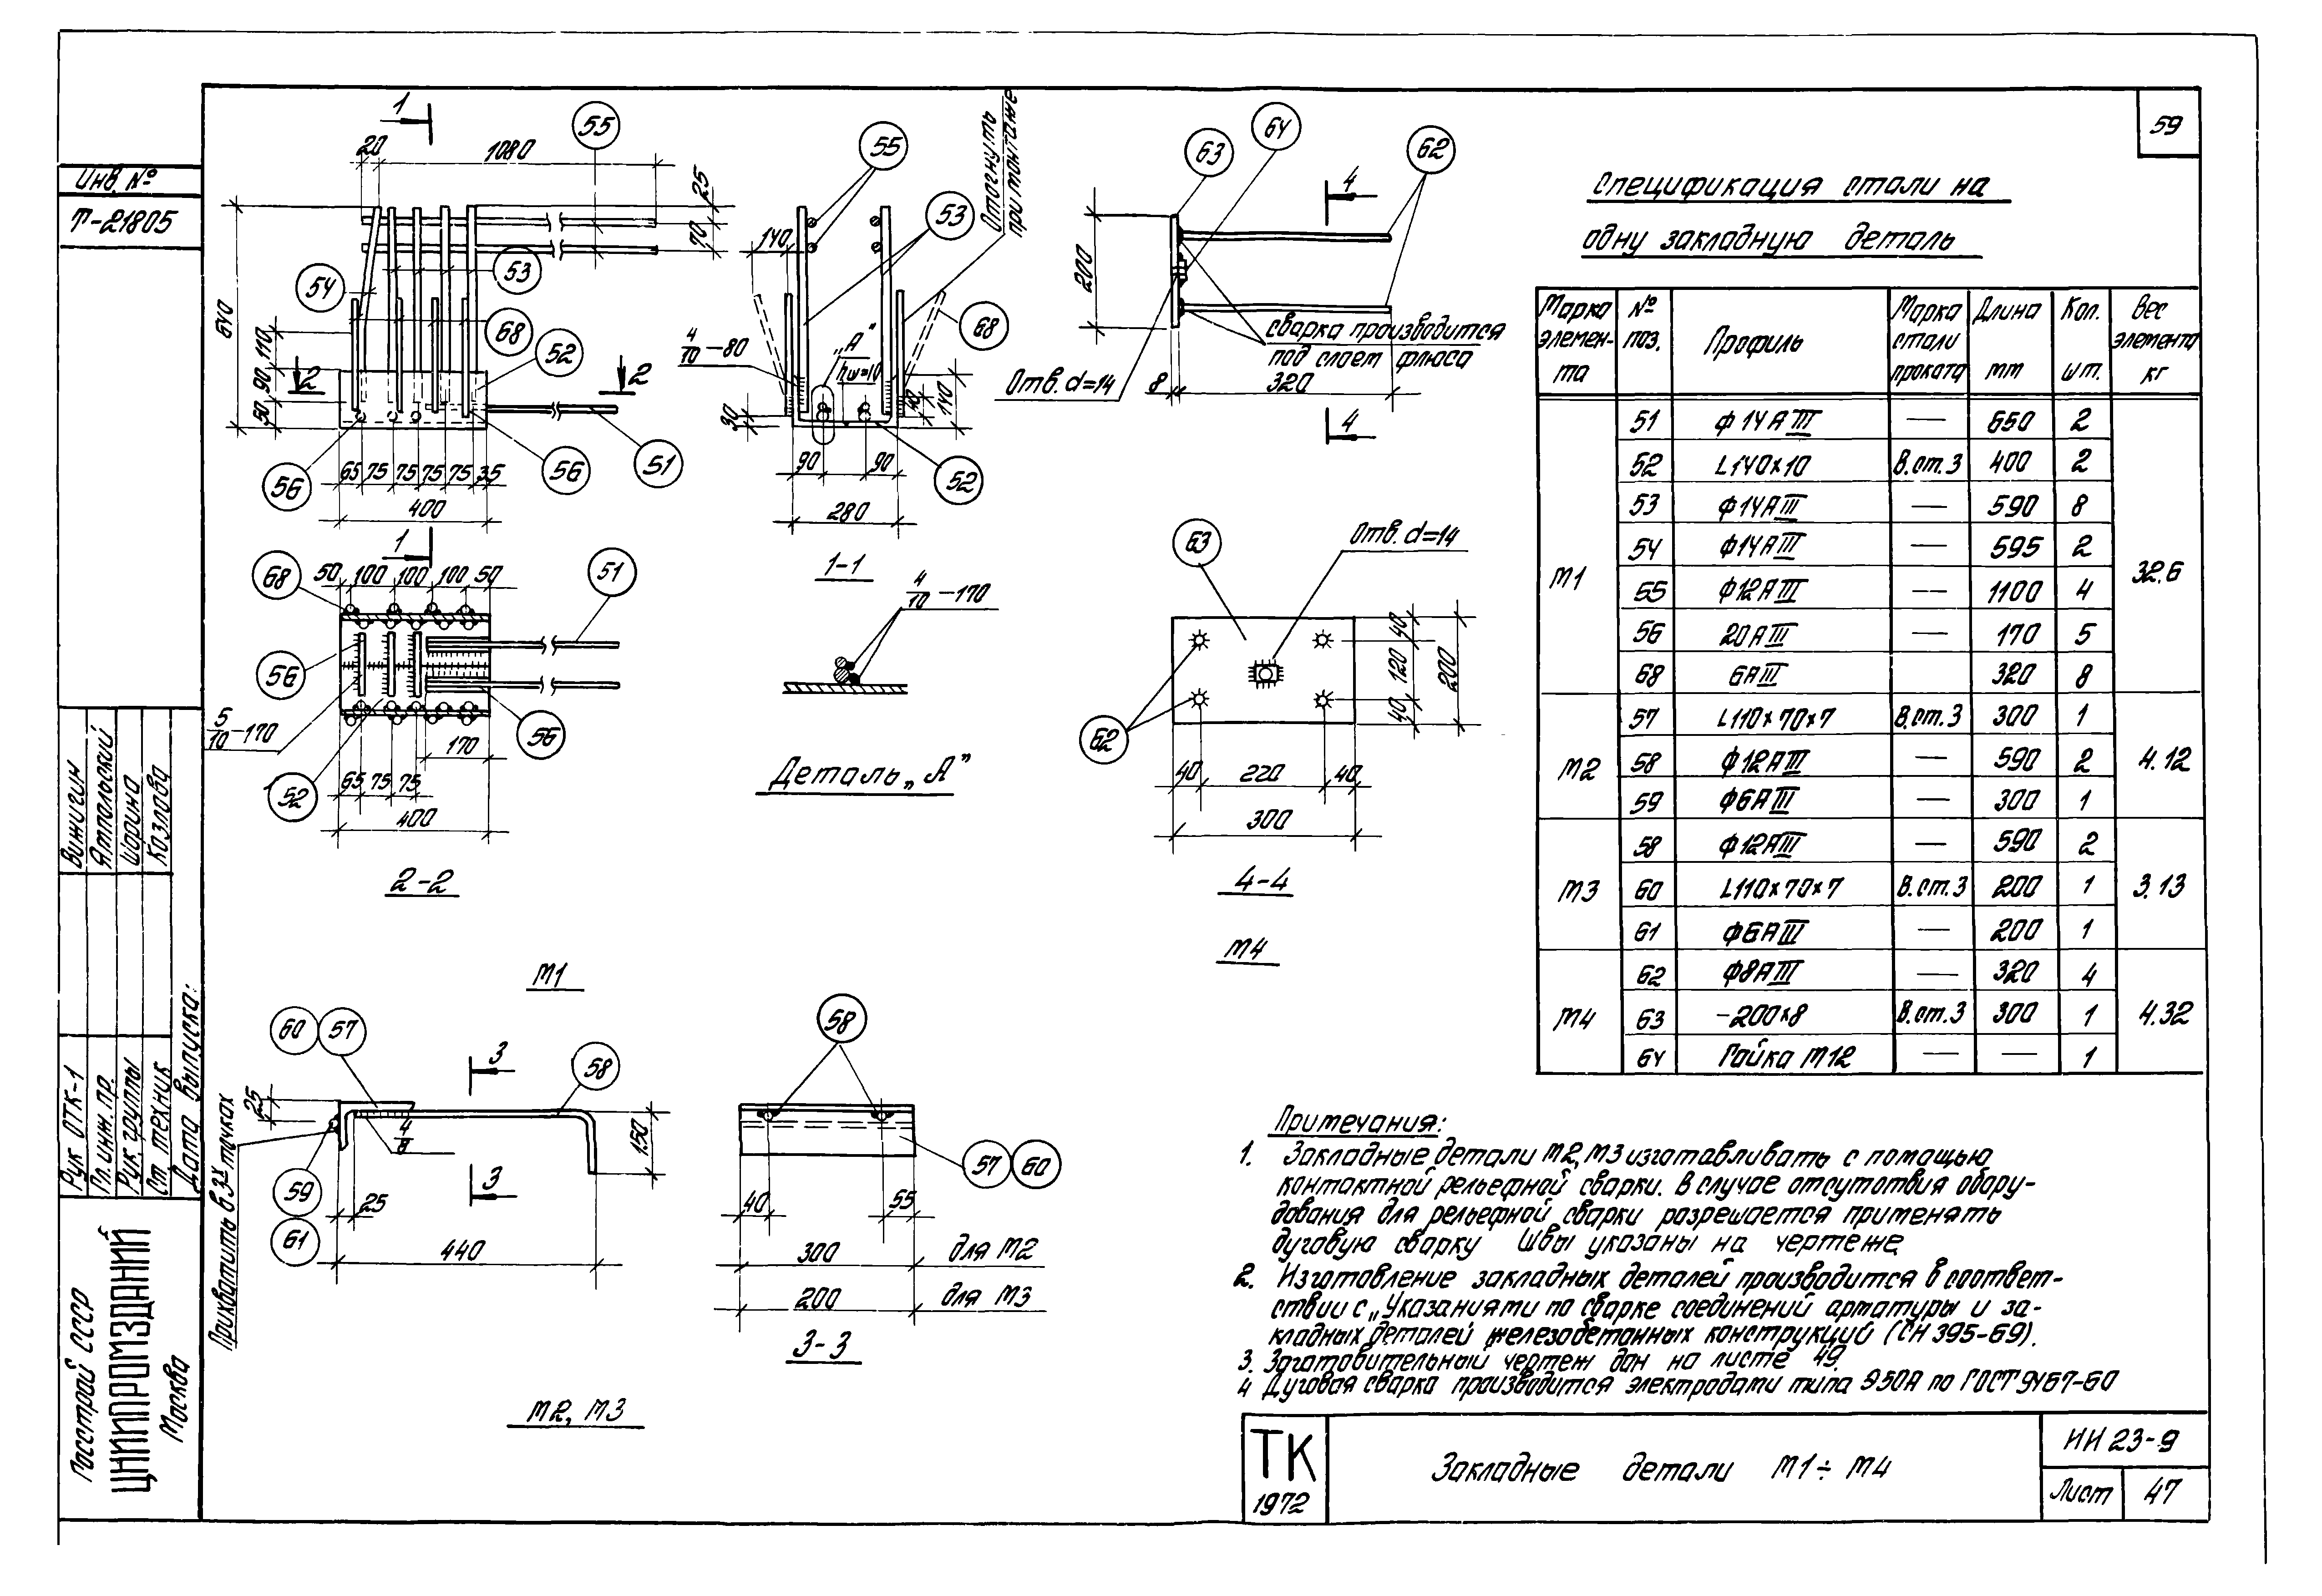 59
Инв. №
Т-21805
1
20
1080
55
25
70
640
54
53
68
52
110
90
50
2
2
56
56
51
65 75 75 75 75 35
400
1
55
53
Отогнуть
при монтаже
140
68
4/10 -80
„А"
hш=10
30
40
140
90
90
52
280
1-1
63
64
62
4
200
сварка производится
под слоем флюса
Отв. d=14
8
320
4
68
50 100 100 100 50
51
56
5/10 -170
56
170
52
65 75 75
400
2-2
4/10 -170
Деталь „А"
63
Отв. d=14
62
40
120
40
200
40 220 40
300
4-4
М4
М1
60 57
3
58
25
4/8
150
59
61
25
3
440
Прихватить в 3х точках
М2, М3
58
57 60
40
55
300 для М2
200 для М3
3-3
Спецификация стали на
одну закладную деталь
Марка элемен-та № поз. Профиль Марка стали проката Длина мм Кол. шт. Вес элемента кг
М1 51 Ф14АIII — 650 2 32.6
52 L140×10 В.ст.3 400 2
53 Ф14АIII — 590 8
54 Ф14АIII — 595 2
55 Ф12АIII — 1100 4
56 20АIII — 170 5
68 6АIII 320 8
М2 57 L110×70×7 В.ст.3 300 1 4.12
58 Ф12АIII — 590 2
59 Ф6АIII — 300 1
М3 58 Ф12АIII — 590 2 3.13
60 L110×70×7 В.ст.3 200 1
61 Ф6АIII — 200 1
М4 62 Ф8АIII — 320 4 4.32
63 -200×8 В.ст.3 300 1
64 Гайка М12 — — 1
Примечания:
1. Закладные детали М2, М3 изготавливать с помощью
контактной рельефной сварки. В случае отсутотвия обору-
дования для рельефной сварки разрешается применять
дуговую сварку Швы указаны на чертеже
2. Изготовление закладных деталей производится в соответ-
ствии с „Указаниями по сварке соединений арматуры и за-
кладных деталей железобетонных конструкций (СН 395-69).
3. Заготовительный чертеж дан на листе 49.
4 Дуговая сварка производится электродами типа Э50А по ГОСТ 9467-60
Рук ОТК-1 Вижигин
Гл. инж. пр. Ямпольский
Рук. группы Шарина
Ст техник Козлова
Дата выпуска:
Госстрой СССР
ЦНИИПРОМЗДАНИЙ
Москва
ТК
1972
Закладные детали М1÷М4
ИИ 23-9
Лист 47